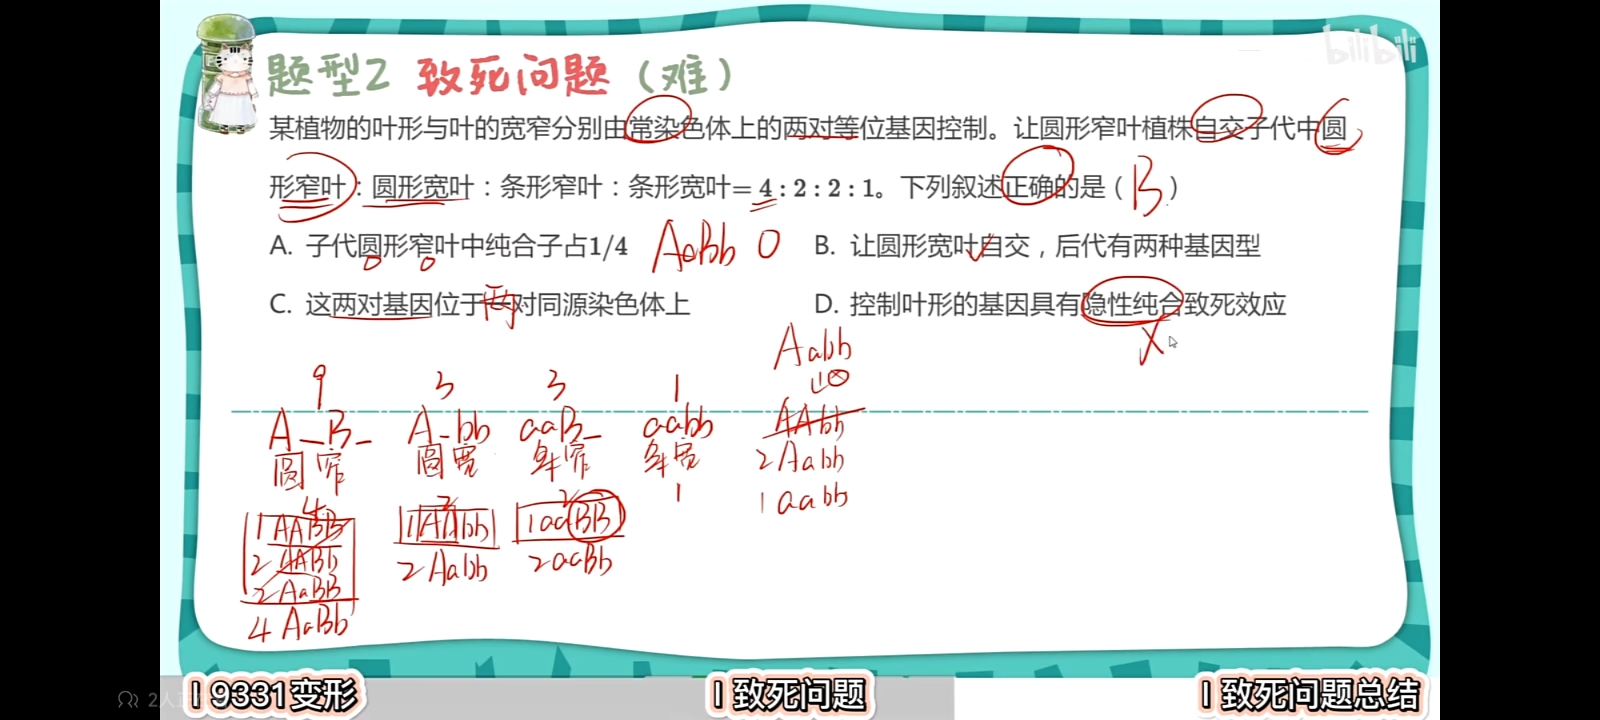 bilibili
题型2 致死问题（难）
某植物的叶形与叶的宽窄分别由常染色体上的两对等位基因控制。让圆形窄叶植株自交子代中圆
形窄叶：圆形宽叶：条形窄叶：条形宽叶=4：2：2：1。下列叙述正确的是（B）
A. 子代圆形窄叶中纯合子占1/4 AaBb 0 B. 让圆形宽叶自交，后代有两种基因型
C. 这两对基因位于一对同源染色体上 两 D. 控制叶形的基因具有隐性纯合致死效应
X
Aabb
9 3 3 1
A_B_ A_bb aaB_ aabb AAbb
圆窄 圆宽 条窄 条宽 2Aabb
4 2 2 1 1aabb
1AABB 1AAbb 1aaBB
2AABb 2Aabb 2aaBb
2AaBB
4AaBb
9331变形 致死问题 致死问题总结
2人正